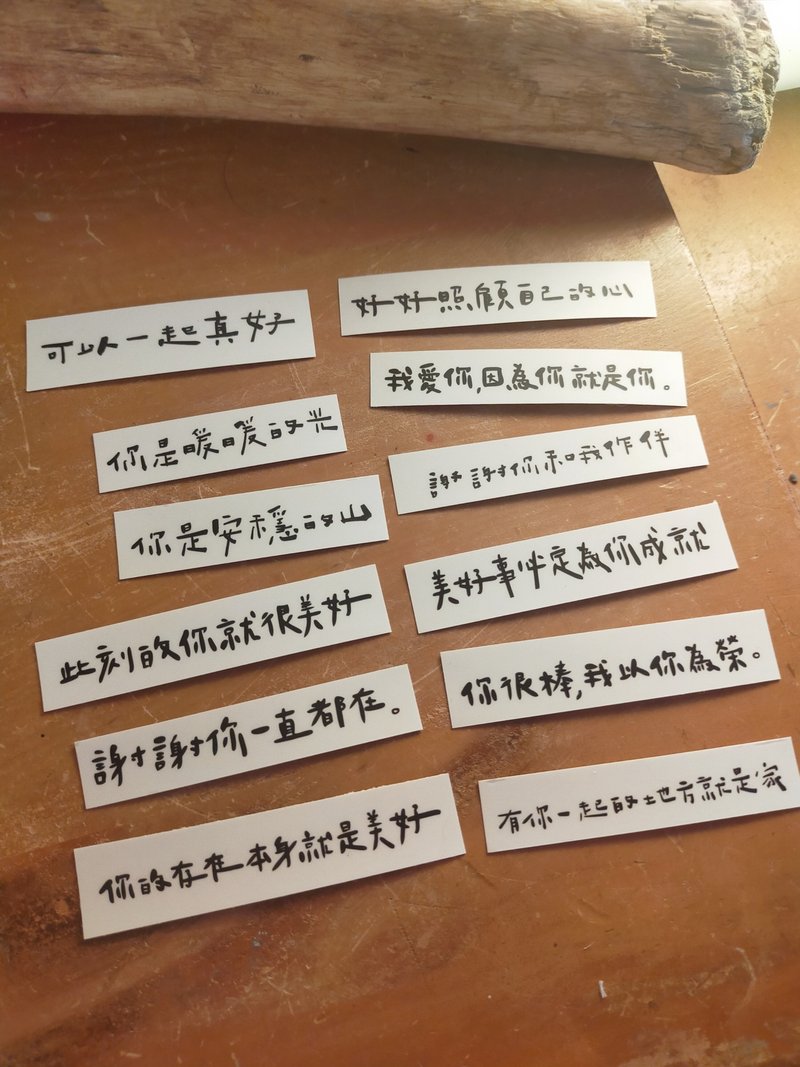 可以一起真好
你是暖暖的光
你是安穩的山
此刻的你就很美好
謝謝你一直都在。
你的存在本身就是美好
好好照顧自己的心
我愛你,因為你就是你。
謝謝你和我作伴
美好事必定為你成就
你很棒,我以你為榮。
有你一起的地方就是家